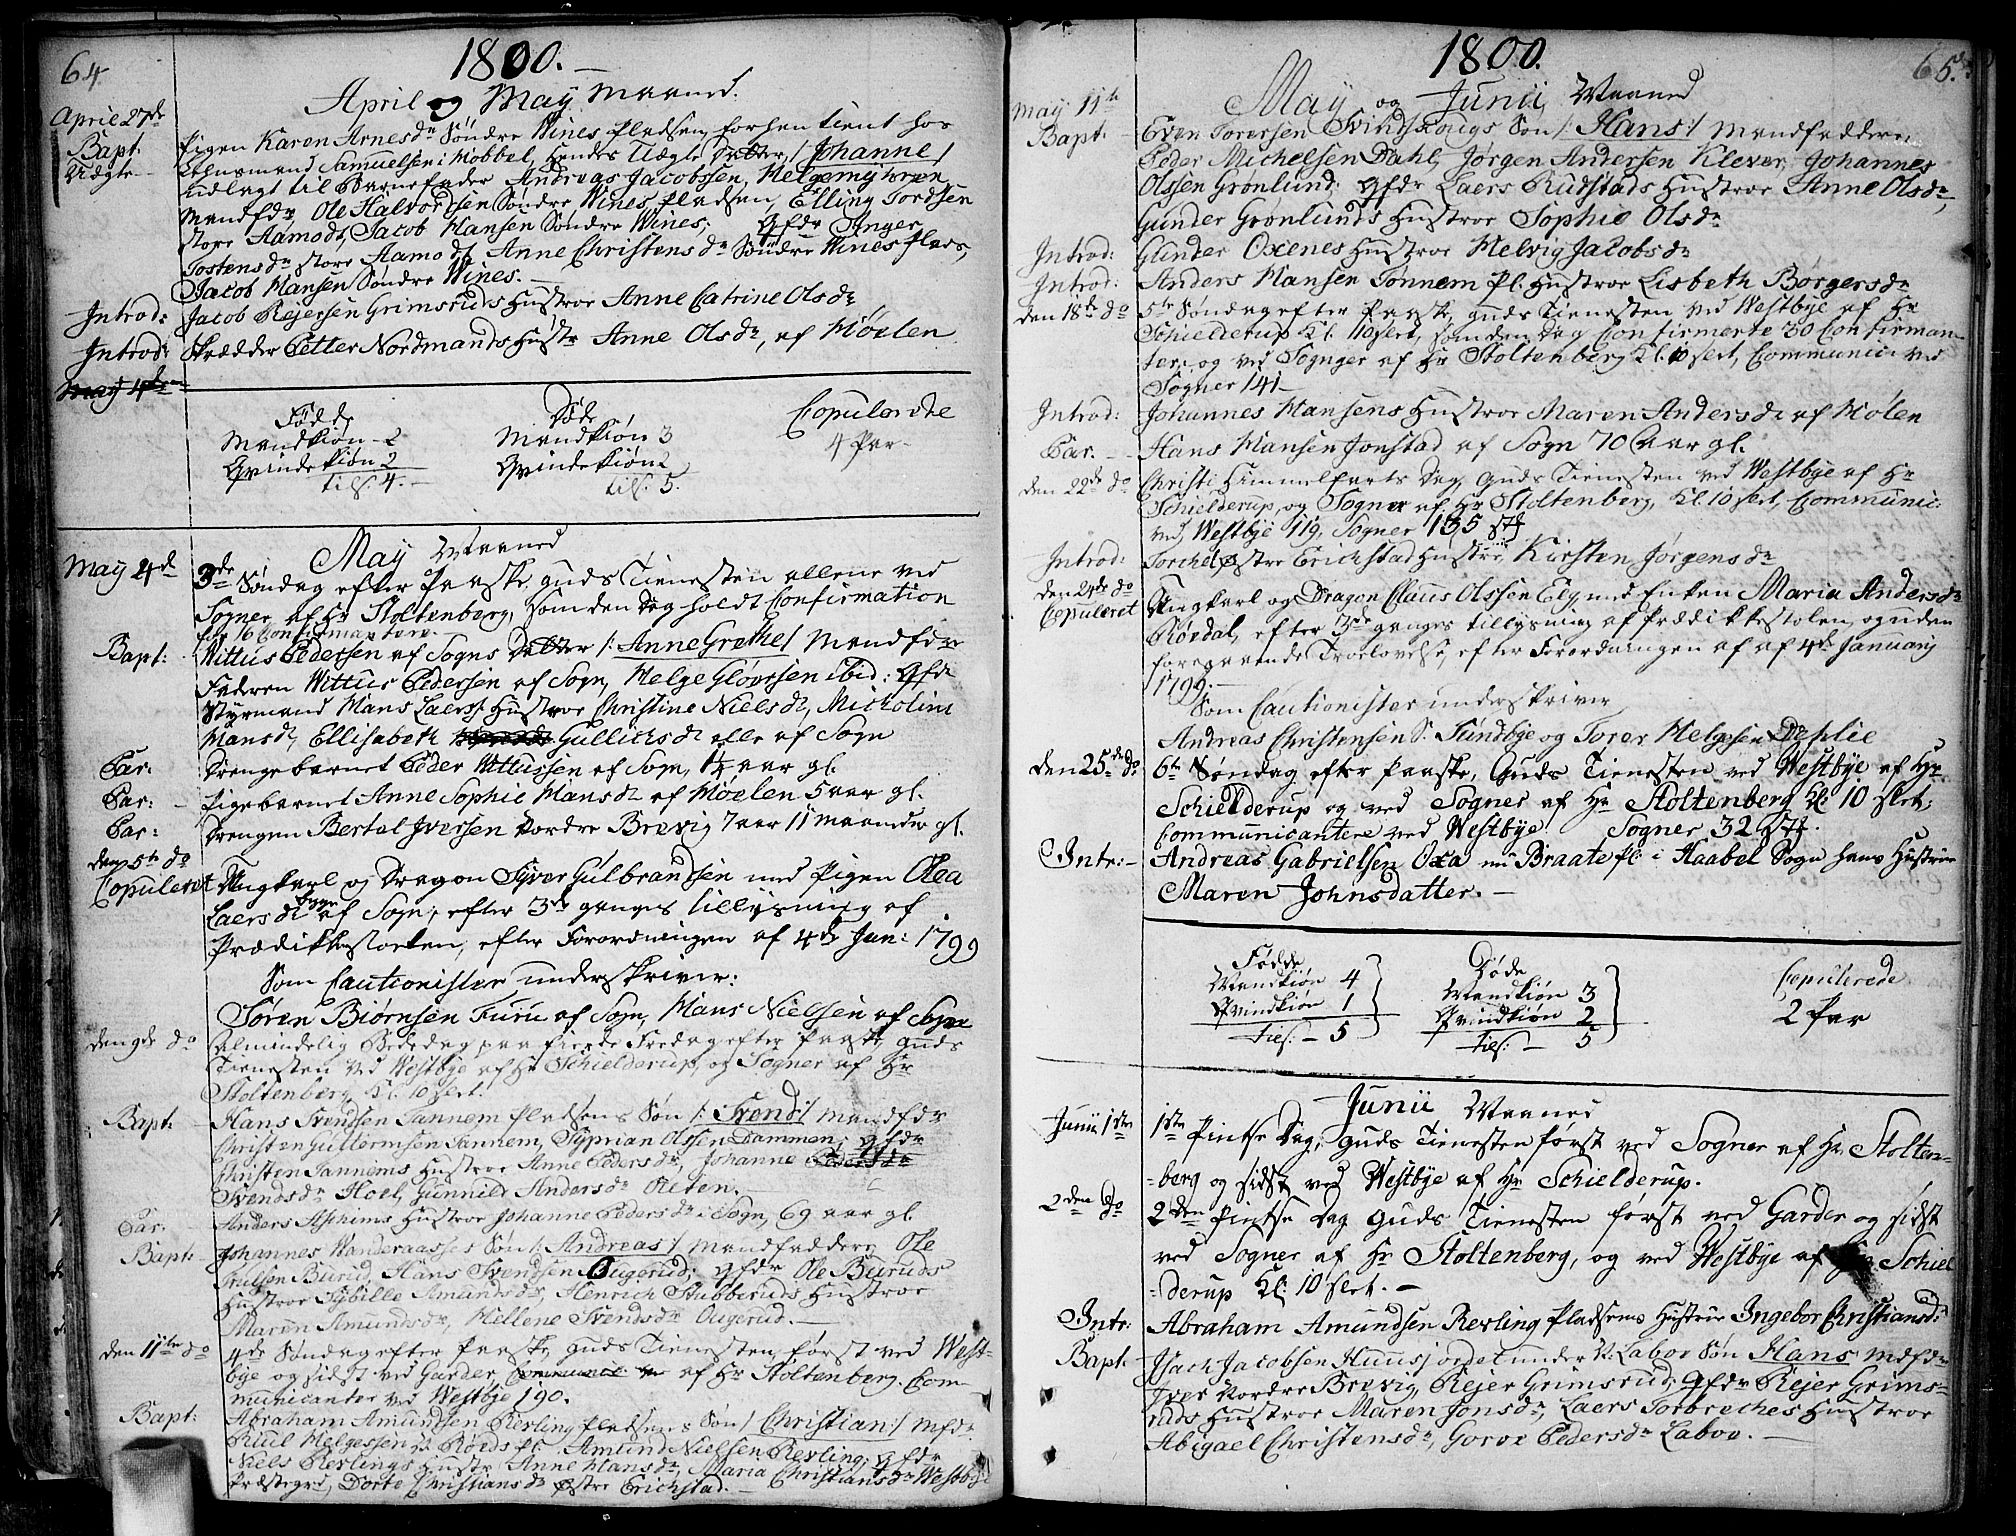 64.
1800.
April og May Maaned.
Aprile 27de
Bapt. Pigen Karen Arnesdr Søndre Wines Pladsen forhen tient hos
Uægte Lehnsmand Samuelsen i Mobbel, hendes Uægte Datter /: Johanne /
udlagt til Barnefader Andreas Jacobssen, Helgemytoren
Mandfdr Ole Halvordsen Søndre Wines Pladsen, Elling Tordsen
store Aamodt, Jacob Hansen Søndre Wines; Qfdr Anger
Tostensdr store Aamodt, Anne Christensdr Søndre Wines Plads,
Jacob Hansen Søndre Wines.
Introd: Jacob Rejersen Grimsruds Hustroe Anne Catrine Olsdr
Introd: Skrædder Petter Nordmands Hustr Anne Olsdr, af Møelen
May 4de
Fødde Døde Copulerede
Mandkiøn - 2 Mandkiøn 3 4 Par -
Qvindekiøn 2 Qvindekiøn 2
tils. 4. - tils. 5.
May Maaned
May 4de 3de Søndag efter Paaske, Guds Tienesten allene ved
Sogner af Hr Stoltenberg, som den Dag holdt Confirmation
for 16 Confirmantere.
Bapt: Wittus Pedersen af Sogns Datter /: Anne Grethe / Mandfdr
Faderen Wittus Pedersen af Sogn, Helge Gløvssen ibid: Qfdr
Styrmand Hans Laerss: Hustroe Christine Nielsdr, Micholine
Hansdr, Ellisabeth Gullichsdr alle af Sogn
Par: Drengebarnet Peder Wittussen af Sogn, 1/4 aar gl.
Par: Pigebarnet Anne Sophie Hansdr af Møelen 5 aar gl.
Par: Drengen Bertal Iversen Nordre Brevig 7 aar 11 maaneder gl.
den 5te do
Copuleret Ungkarl og Dragon Syver Gulbrandsen med Pigen Olea
Laersdr Sogn af Sogn, efter 3de ganges tillysning af
Prædikkestoelen, efter Forordningen af 4de Jan: 1799
Som Cautionister underskriver:
Søren Biørnsen Furu af Sogn, Hans Nielsen af Sogn
den 9de do Almindelig Bededag paa fierde Fredag efter Paaske, Guds
Tienesten ved Westbye af Hr Schielderup, og Sogner af Hr
Stoltenberg, Kl. 10 slet.
Bapt: Hans Svendsen Tannem Pladsens Søn /: Svend / Mandfdr
Christen Guttormsen Tannem, Syprian Olssen Dammen; Qfdr
Christen Tannems Hustroe Anne Pedersdr, Johanne Pedersdr
Svendsdr Hoel, Gunnild Andersdr Oleten.
Par. Anders Aschims Hustroe Johanne Pedersdr i Sogn, 69 aar gl.
Bapt: Johannes Wanderaasses Søn /: Andreas / Mandfaddere Ole
Trulsen Burud, Hans Svendsen Ougerud; Qfdr Ole Buruds
Hustroe Sybille Amundsdr, Henrich Stubberuds Hustroe
Maren Amundsdr, Hellene Svendsdr Ougerud.
den 11te do 4de Søndag efter Paaske, Guds Tienesten først ved West-
bye og sidst ved Garder, af Hr Stoltenberg. Com-
municanter ved Westbye 190.
Bapt: Abraham Amundsen Revling Pladsens Søn / Christian / Mfdr
Riul Helgessen Røeds pl. Amund Nielsen Revling; Qfdr
Niels Revlings Hustr Anne Hansdr, Maria Christiansdr Westbye
Præstegrd, Dorte Christiansdr Østre Erichstad.
65.
1800.
May og Junii Maaned
May 11te
Bapt: Even Torersen Svindskougs Søn /: Hans / Mandfaddere
Peder Michelsen Dahl, Jørgen Andersen Klever, Johannes
Olssen Grønlund; Qfdr Laers Rudstads Hustroe Anne Olsdr,
Gunder Grønlunds Hustroe Sophie Olsdr
Introd: Gunder Oxenes Hustroe Helvig Jacobsdr
Introd: Anders Hansen Tønnem Pl. Hustroe Lisbeth Børgersdr
den 18de do 5te Søndag efter Paaske, Guds Tienesten ved Westbye af Hr
Schielderup Kl. 10 slet, som den Dag Confirmerte 30 Confirman-
ter, og ved Sogner af Hr Stoltenberg Kl. 10 slet, Communic: ved
Sogner 141 -
Introd: Johannes Hansens Hustroe Maren Andersdr af Mølen
Par. Hans Hansen Jonstad af Sogn 70 Aar gl.
den 22de do Christi Himmelfarts Dag, Guds Tienesten ved Westbye af Hr
Schielderup, og Sogner af Hr Stoltenberg, Kl. 10 slet, Communic:
ved Westbye 119, Sogner 135 stk
Introd: Torchel Østre Erichstad Hustroe Kirsten Jørgensdr
den 24de do
Copuleret Ungkarl og Dragon Claus Olssen Ely med Enken Maria Andersdr
Røvdal, efter 3de ganges tillysning af Prædikkestolen, og uden
foregaaende Troelovelse, efter Forordningen af af 4de Januarij
1799.
Som Cautionister underskriver
Andreas Christensen S. Sundbye og Torer Helgesen Dæhlie
den 25de do 6te Søndag efter Paaske, Guds Tienesten ved Westbye af Hr
Schielderup og ved Sogner af Hr Stoltenberg Kl: 10 slet;
Communicantere ved Westbye Sogner 32 stk.
Intr: - Andreas Gabrielsen Oxa nu Braate Pl: i Haabel Sogn hans Hustrue
Maren Johnsdatter. -
Fødde Døde Copulerede
Mandkiøn 4 Mandkiøn 3 2 Par
Qvindkiøn 1 Qvindkiøn 2
tils: - 5 tils: - 5
Junii Maaned
Junii 1ste 1ste Pintse Dag, Guds Tienesten først ved Sogner af Hr. Stolten-
-berg og sidst ved Westbye af Hr Schielderup.
2den do 2den Pintse Dag Guds Tienesten først ved Garder og sidst
ved Sogner af Hr Stoltenberg, og ved Westbye af Schiel
-derup Kl: 10 slet. -
Intr: Abraham Amundsen Revling Pladsens Hustrue Ingebor Christiansd:
Bapt: Isach Jacobsen Huusjordet under N: Labov Søn Hans Mdfdr
Iver Nordre Brevig, Rejer Grimsrud; Qfdr Rejer Grims-
ruds Hustroe Maren Jonsdr, Laers Torbreches Hustroe
Abigael Christensdr, Gorve Pedersdr Labov. -